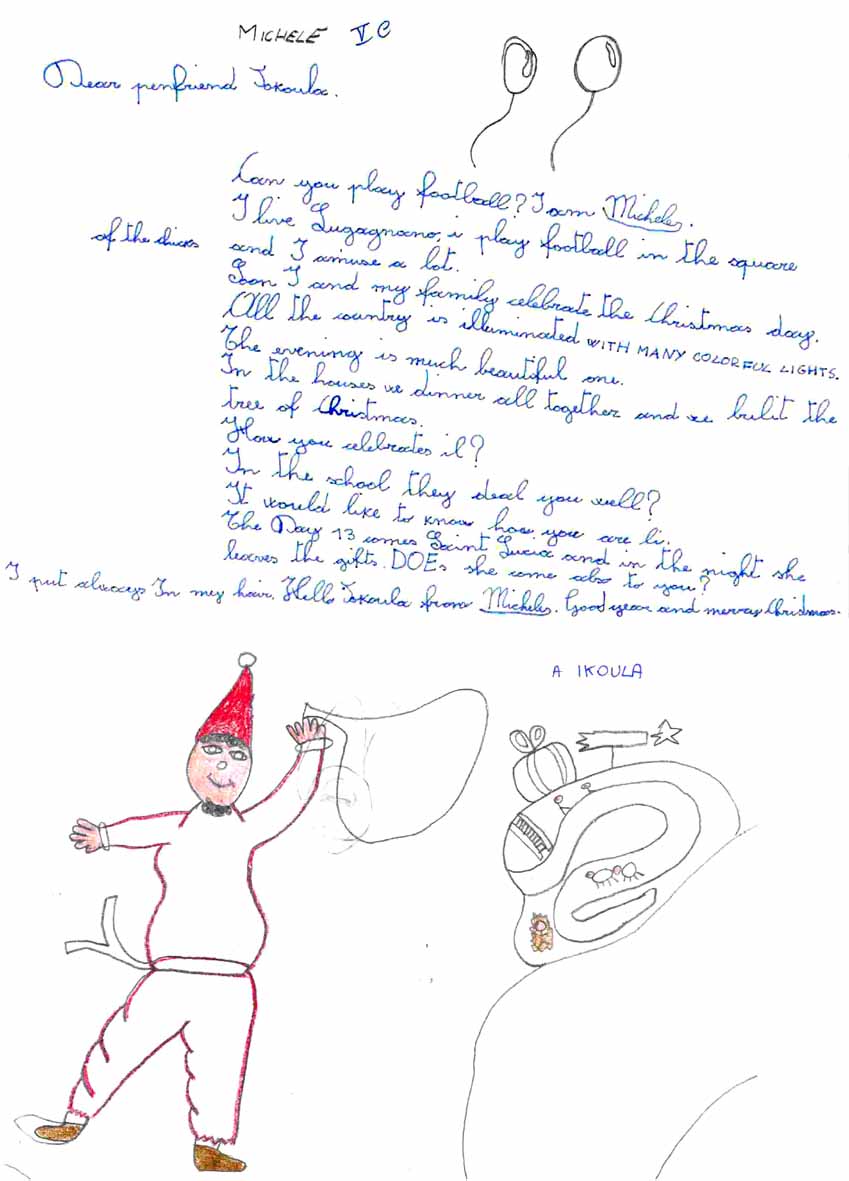 MICHELE VC
Dear penfriend Iokoula.
Can you play football? I am Michele.
I live Lugagnano, i play football in the square
of the and I amuse a lot.
Soon I and my family celebrate the Christmas day.
All the country is illuminated WITH MANY COLORFUL LIGHTS.
The evening is much beautiful one.
In the houses we dinner all together and we bulit the
tree of Christmas.
How you celebrates it?
In the school they deal you well?
It would like to know how you are li.
The Day 13 comes Saint Lucia and in the night she
leaves the gifts. DOEs she come also to you?
I put always In my hair. Hello Iokoula from Michele. Good year and merry Christmas.
A IKOULA